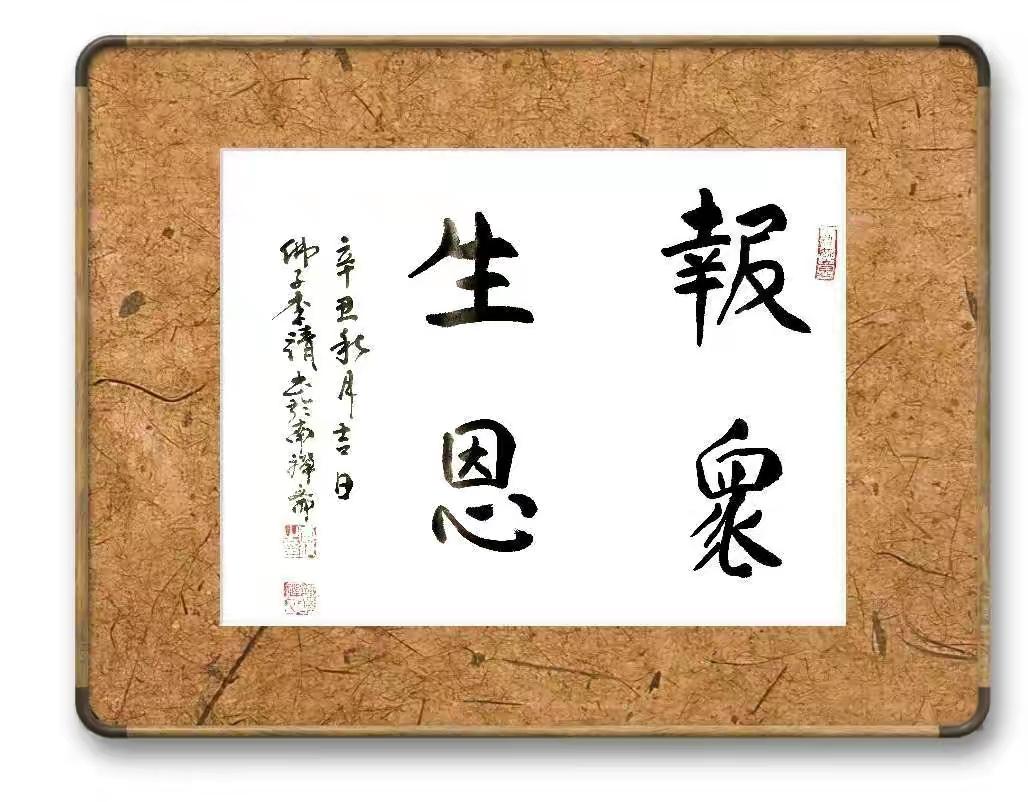 報眾
生恩
辛丑秋月吉日
佛子李靖書於南禪齋